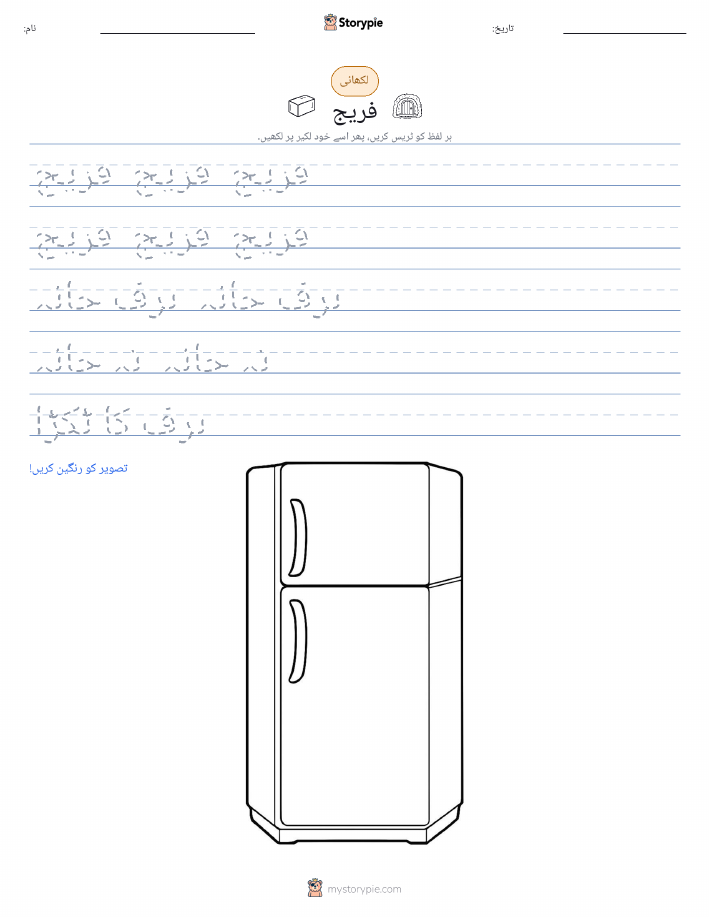 نام:
Storypie
تاریخ:
لکھائی
فریج
ہر لفظ کو ٹریس کریں، پھر اسے خود لکیر پر لکھیں۔
فریج فریج فریج
فریج فریج فریج
برف خانہ برف خانہ
تہ خانہ تہ خانہ
برف کا ٹکڑا
تصویر کو رنگین کریں!
mystorypie.com